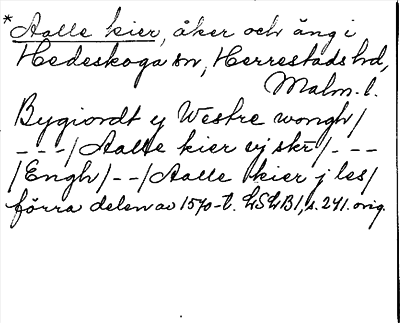 *Aalle kier, åker och äng i
Hedeskoga sn, Herrestads hd,
Malm. l.
Bygiordt y Westre wongh/
---/Aalle kier ij skr/---
/Engh/--/Aalle kier j les/
förra delen av 1570-t. LSLB1, s. 241. orig.